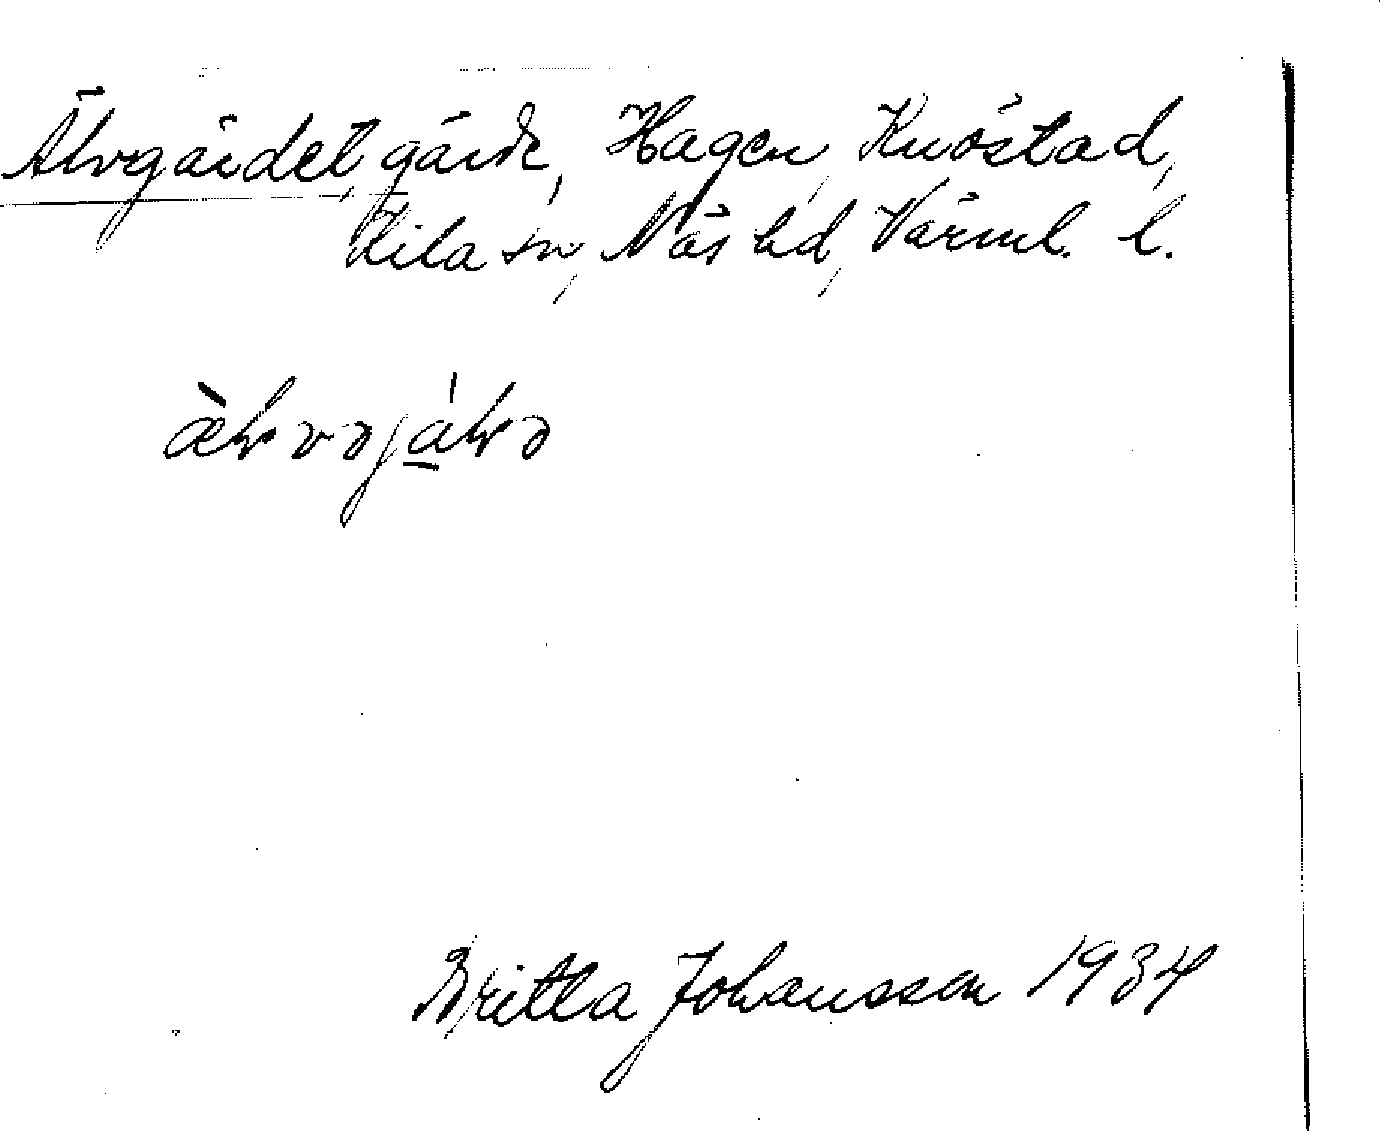 Älvgärdet, gärde, Hagen, Knöstad,
Kila sn, Näs hd, Värml. l.
Britta Johansson 1934